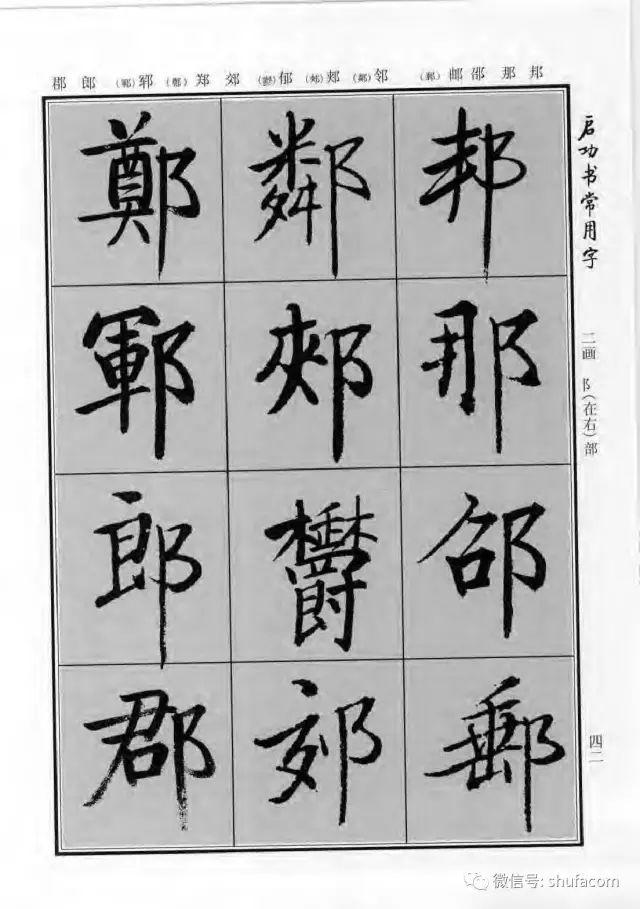 邦那邵邮(郵)邻(鄰)郏(郟)郁(鬱)郊郑(鄭)郓(鄆)郎郡
启功书常用字
二画 阝(在右)部
邦
那
邵
郵
鄰
郟
鬱
郊
鄭
鄆
郎
郡
四二
微信号: shufacom